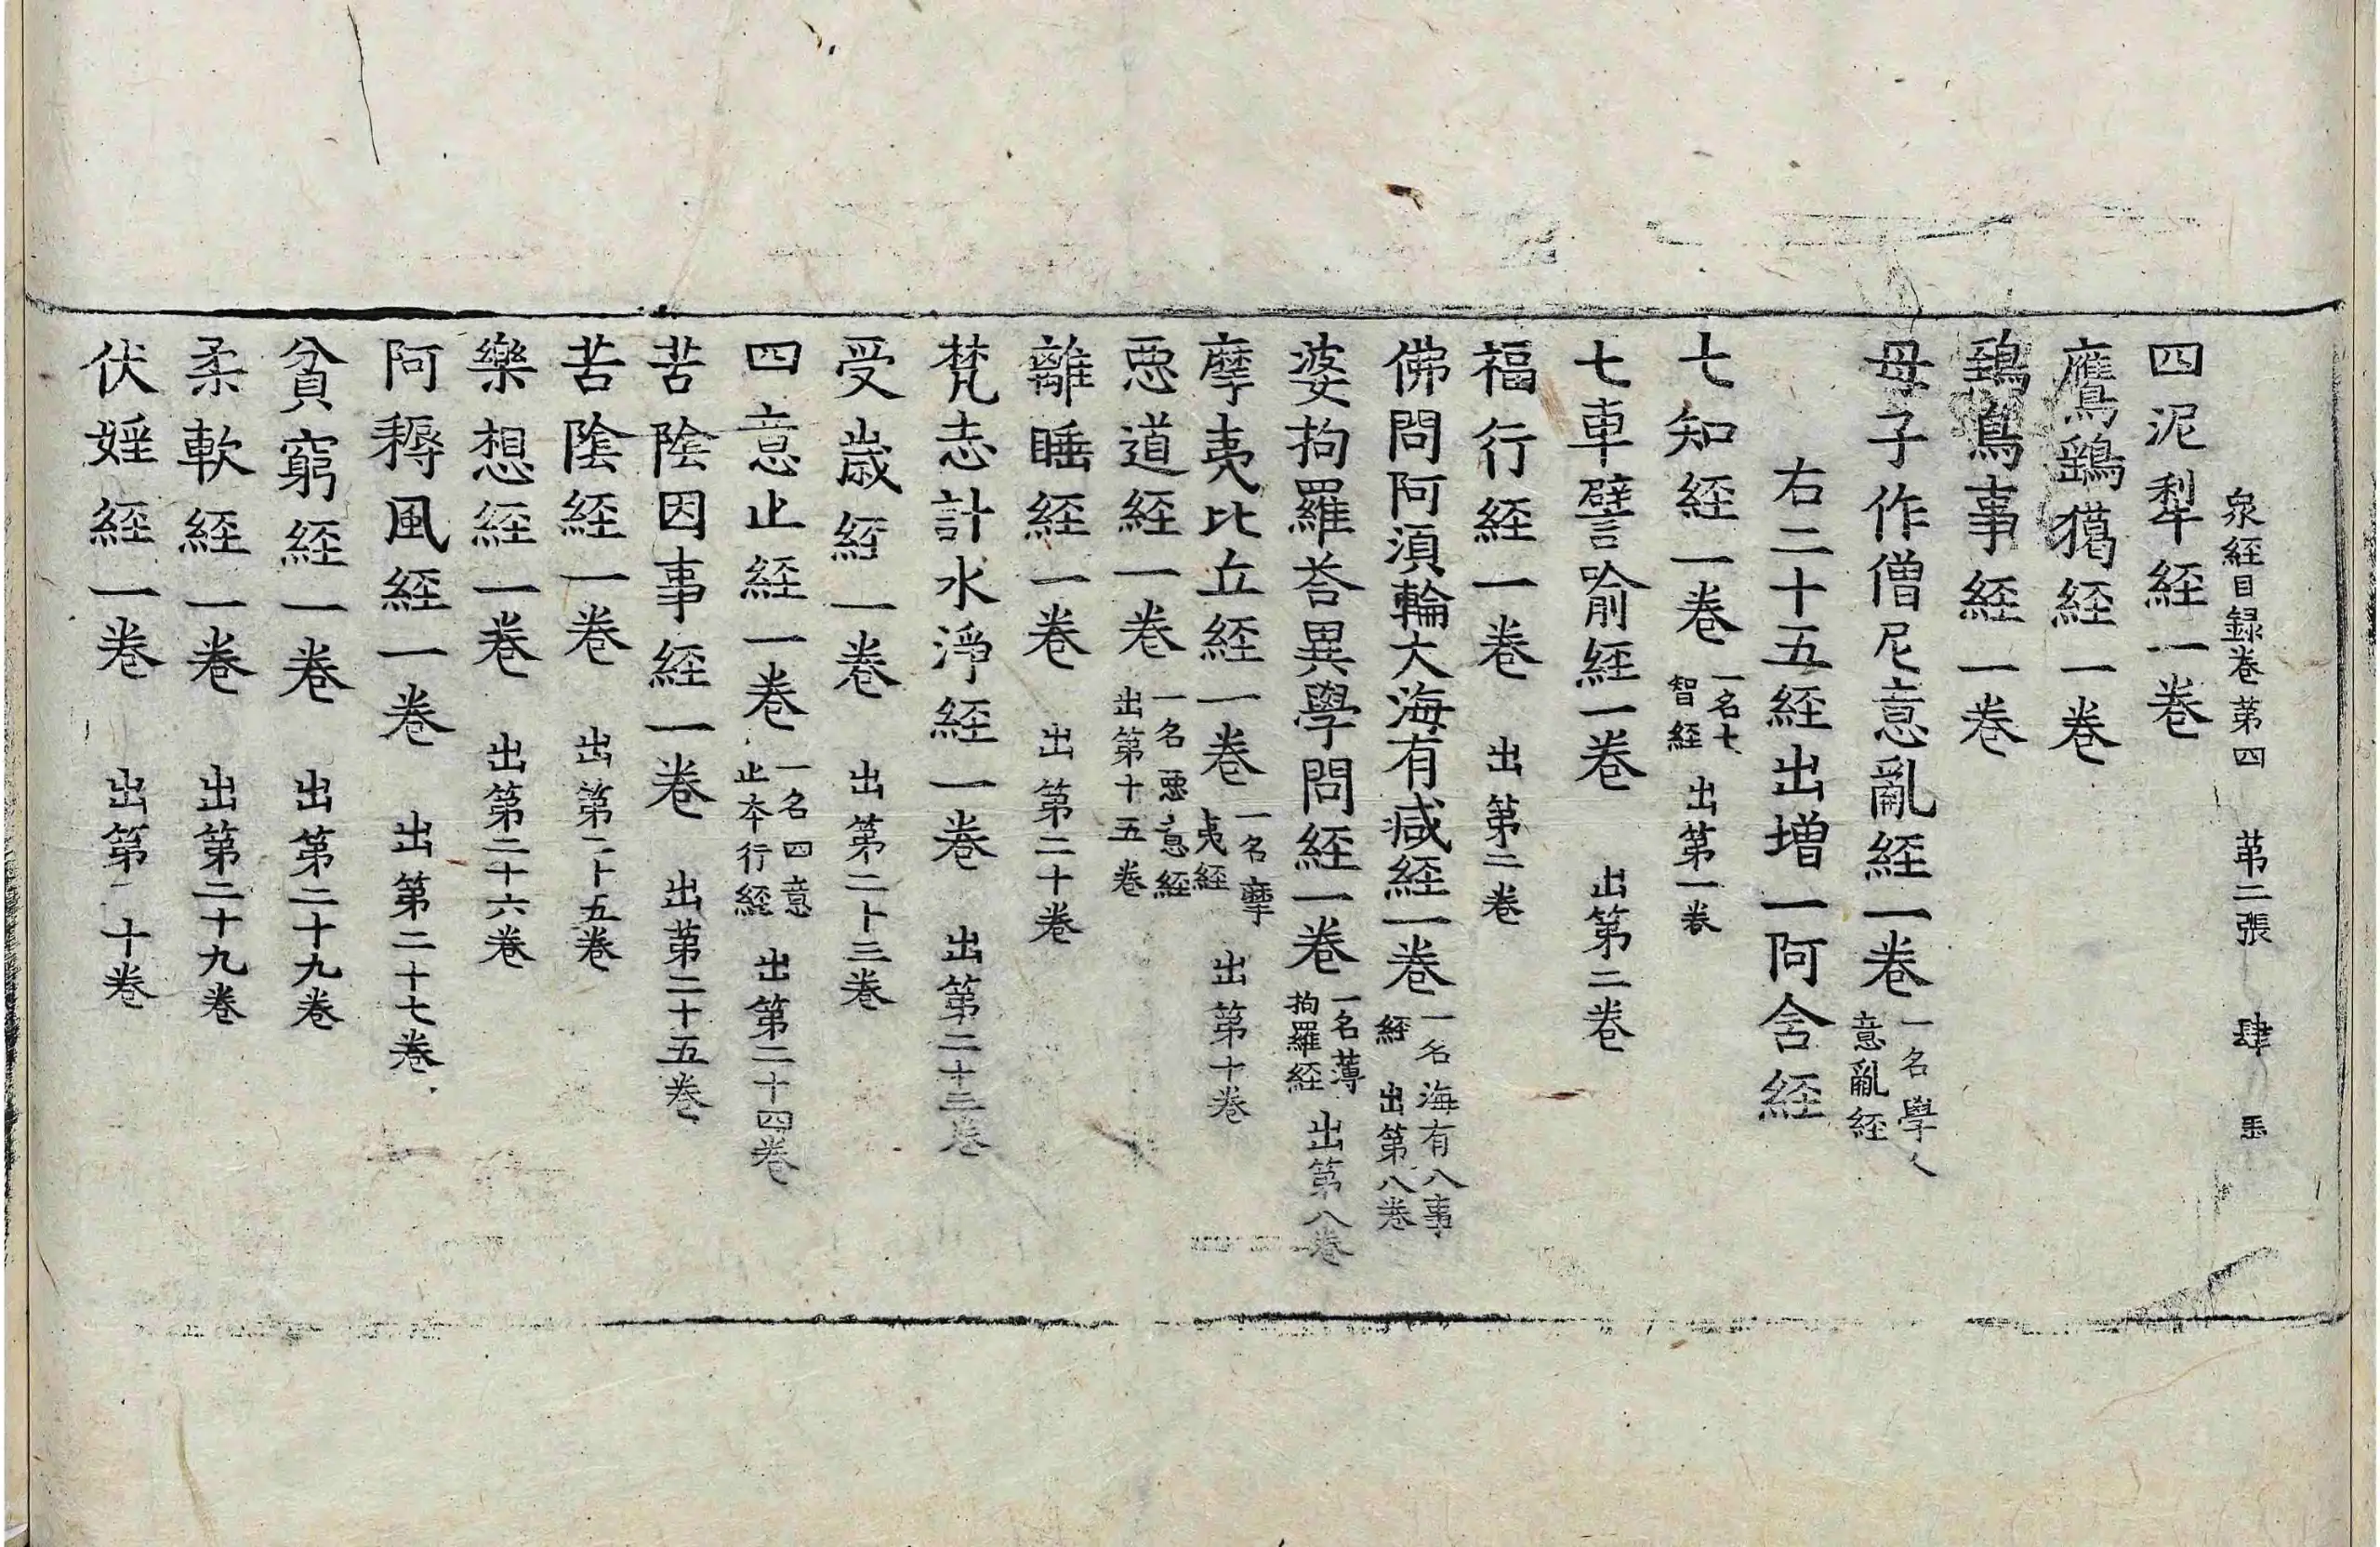 衆経目録卷第四 第二張 肆 玉
四泥犁経一卷
鷹鷂獦経一卷
鵄鳥事経一卷
母子作僧尼意亂経一卷 一名學人意亂経
右二十五経出増一阿含経
七知経一卷 一名七智経 出第一卷
七車譬喻経一卷 出第二卷
福行経一卷 出第二卷
佛問阿湏輪大海有减経一卷 一名海有八事経 出第八卷
婆拘羅荅異學問経一卷 一名薄拘羅経 出第八卷
摩夷比丘経一卷 一名摩夷経 出第十卷
惡道経一卷 一名惡意経 出第十五卷
離睡経一卷 出第二十卷
梵志計水淨経一卷 出第二十三卷
受歳経一卷 出第二十三卷
四意止経一卷 一名四意止本行経 出第二十四卷
苦陰因事経一卷 出第二十五卷
苦陰経一卷 出第二十五卷
樂想経一卷 出第二十六卷
阿耨風経一卷 出第二十七卷
貧窮経一卷 出第二十九卷
柔軟経一卷 出第二十九卷
伏婬経一卷 出第十卷